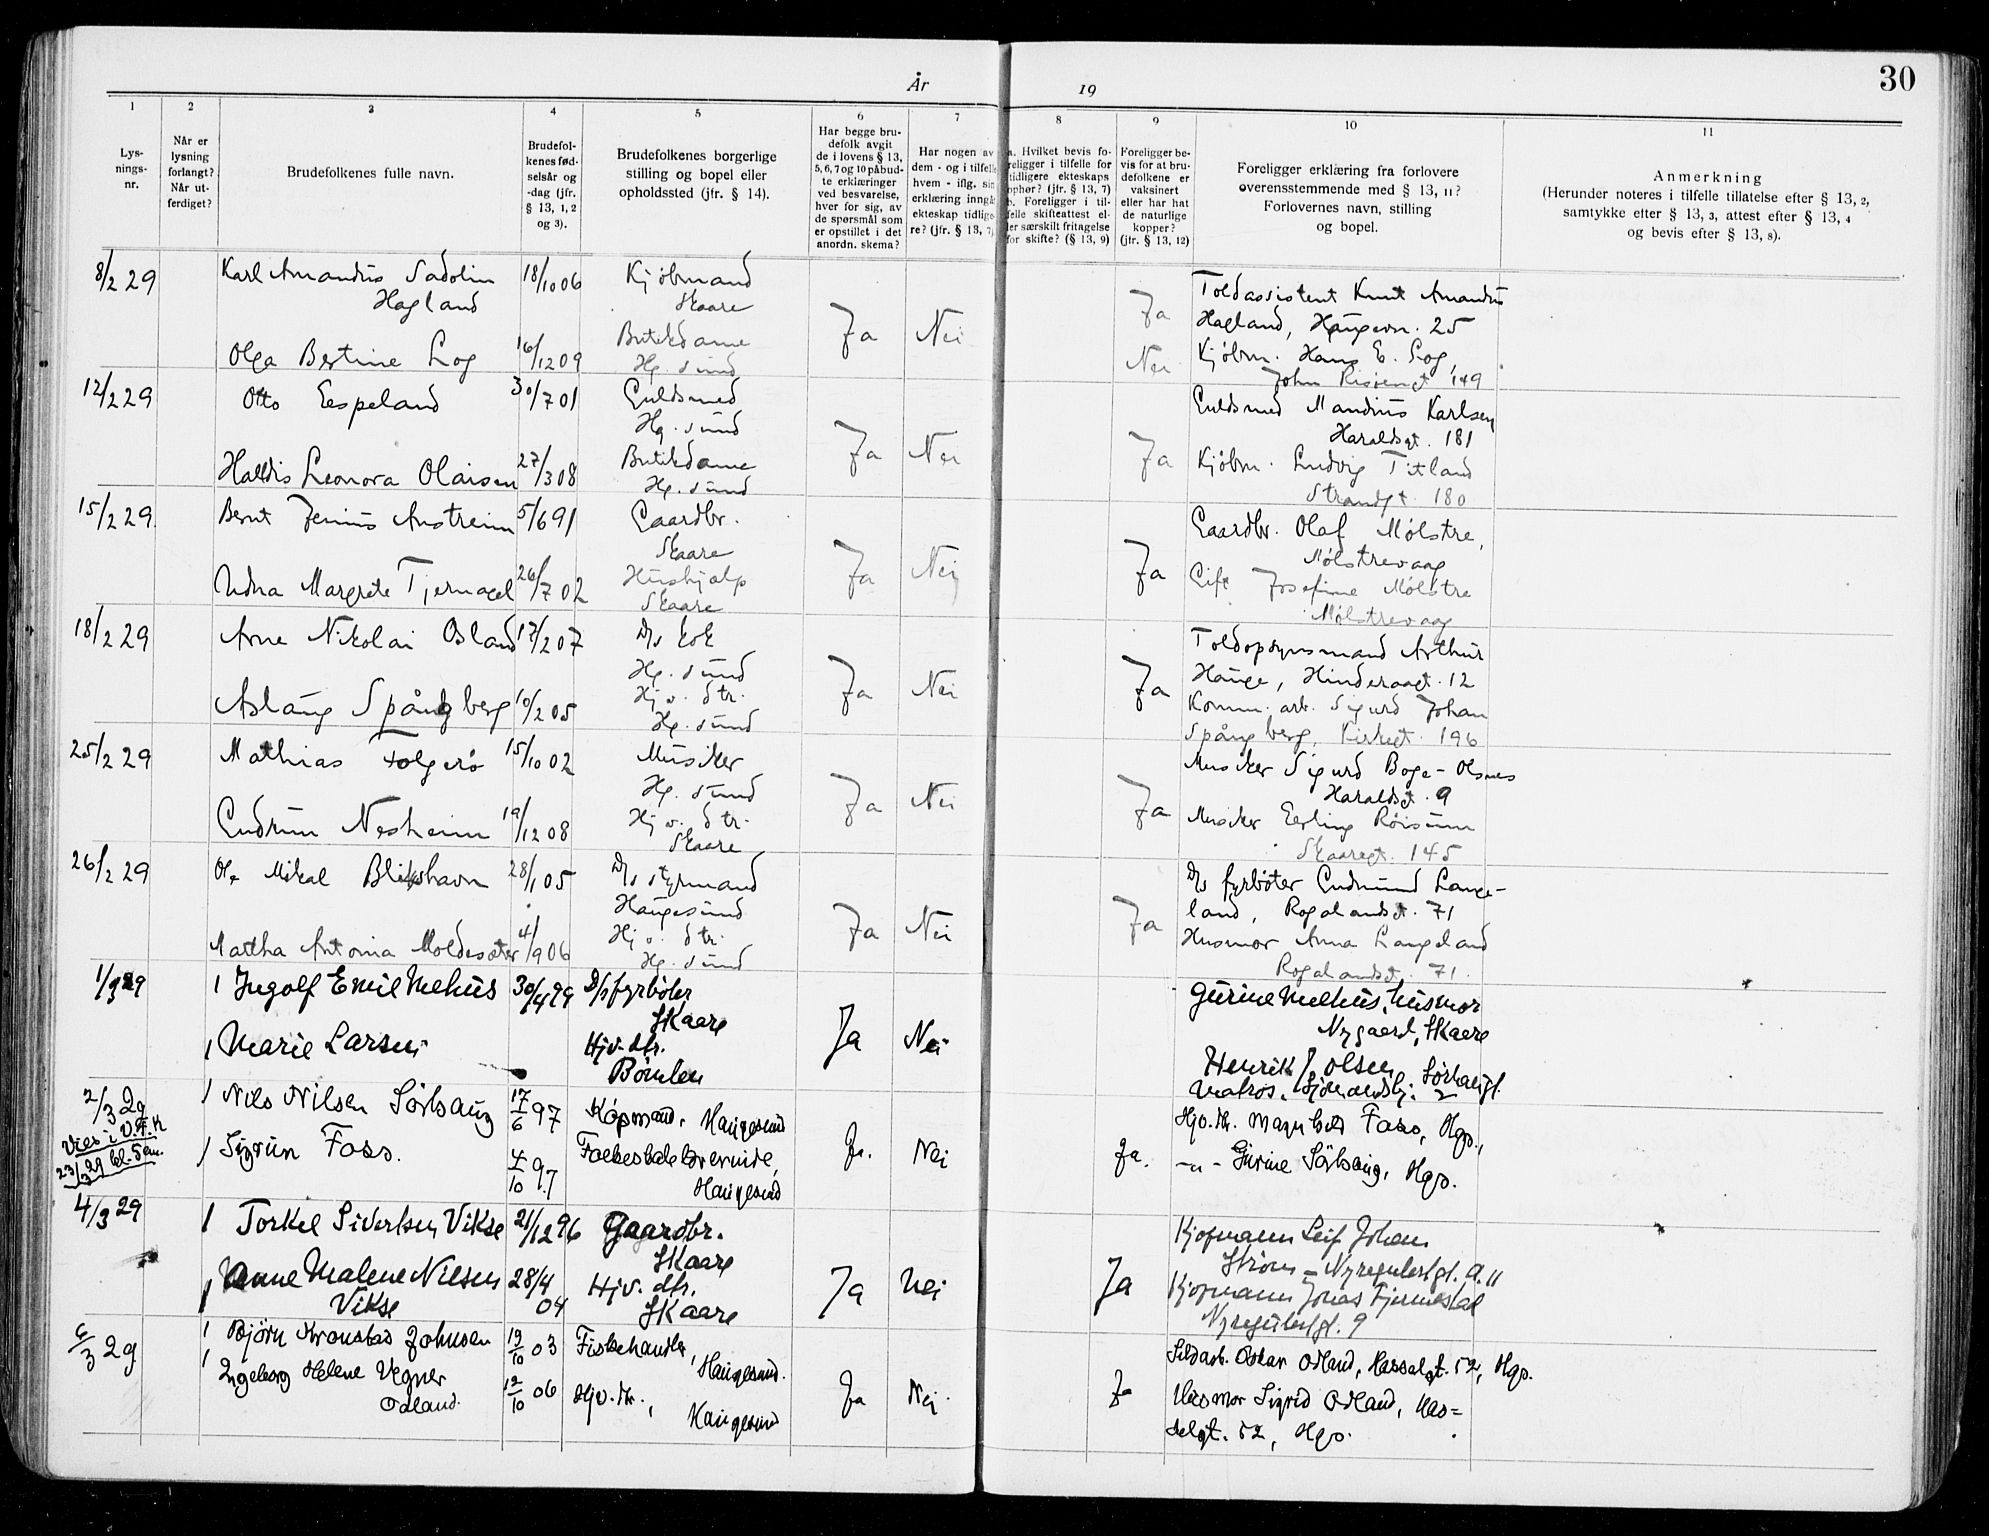 30
År 19
1 2 3 4 5 6 7 8 9 10 11
Lys-
nings-
nr.
Når er
lysning
forlangt?
Når ut-
ferdiget?
Brudefolkenes fulle navn.
Brudefol-
kenes fød-
selsår og
-dag (jfr.
§ 13, 1, 2
og 3).
Brudefolkenes borgerlige
stilling og bopel eller
opholdssted (jfr. § 14).
Har begge bru-
defolk avgit
de i lovens § 13,
5, 6, 7 og 10 påbud-
te erklæringer
ved besvarelse,
hver for sig, av
de spørsmål som
er opstillet i det
anordn. skema?
Har nogen av
dem - og i tilfelle
hvem - iflg. sin
erklæring inngåt
ekteskap tidlige-
re? (jfr. § 13, 7)
a. Hvilket bevis fo-
religger i tilfelle for
tidligere ekteskaps
ophør? (jfr. § 13, 7)
b. Foreligger i til-
felle skifteattest el-
ler særskilt fritagelse
for skifte? (§ 13, 9)
Foreligger be-
vis for at bru-
defolkene er
vaksinert
eller har hat
de naturlige
kopper?
(jfr. § 13, 12)
Foreligger erklæring fra forlovere
overensstemmende med § 13, 11?
Forlovernes navn, stilling
og bopel.
Anmerkning
(Herunder noteres i tilfelle tillatelse efter § 13, 2,
samtykke efter § 13, 3, attest efter § 13, 4
og bevis efter § 13, 8).
8/2 29 Karl Amandus Sadolin 18/10 06 Kjøbmand
Hagland Skaare
Olga Bertine Log 16/12 09 Butikdame
Hg.sund
Ja Nei Ja
Nei
Toldassistent Knut Amandus
Hagland, Haugevn. 25
Kjøbm. Hans E. Log,
John Risøengt 149
12/2 29 Otto Eespeland 30/7 01 Guldsmed
Hg.sund
Haldis Leonora Olaisen 27/3 08 Butikdame
Hg.sund
Ja Nei Ja
Guldsmed Mandius Karlsen
Haraldsgt. 181
Kjøbm. Ludvig Titland
Strandgt. 180
15/2 29 Bernt Jenius Austreim 5/6 91 Gaardbr.
Skaare
Margrete Tjernagel 26/7 02 Hushjælp
Skaare
Ja Nei Ja
Gaardbr. Olaf Mølstre,
Mølstrevaag
Gift Josefine Mølstre
Mølstrevaag
18/2 29 Arne Nikolai Osland 17/2 07 D/s kok
Hg.sund
Aslaug Spångberg 10/2 05 Hj.v. dtr.
Hg.sund
Ja Nei Ja
Toldopsynsmand Arthur
Hauge, Hinderaagt. 12
Komm. arb. Sigurd Johan
Spångberg, Kirkegt. 196
25/2 29 Mathias Folgerø 15/10 02 Musiker
Hg.sund
Gudrun Nesheim 19/12 08 Hj.v. dtr.
Skaare
Ja Nei Ja
Musiker Sigurd Boge-Olsnes
Haraldsgt. 9
Musiker Eerling Røisum
Skaaregt. 145
26/2 29 Ole Mikal Blikshavn 28/1 05 D/s styrmand
Haugesund
Martha Antonia Moldesæter 4/9 06 Hj.v. dtr.
Hg.sund
Ja Nei Ja
D/s fyrbøter Gudmund Lange-
land, Rogalandsgt. 71
Husmor Anna Langeland
Rogalandsgt. 71.
1/3 29 1 Ingolf Emil Mehus 30/4 99 D/s fyrbøter
Skaare
1 Marie Larsen Hjv. dtr.
Bømlen
Ja Nei
Gurine Mehus, husmor
Nygaard, Skaare
Henrik J. Olsen
Matros,
2/3 29 1 Nils Nilsen Sørhaug 17/6 97 Kjøpmand, Haugesund
Vies i
23/3 29
1 Sigrun Foss. 4/10 97
Haugesund
Ja. Nei Ja.
Hjv.dtr. Foss, Hgs.,
-"- Gurine Sørhaug, Hgs.
4/3 29 1 Torkel Sivertsen Vikse 21/12 96 Gaardbr.
Skaare
1 Anne Malene Nilsen 28/4 Hjv. dtr.
Vikse 04 Skaare
Ja Nei Ja
Kjøpmann Leif Johan
Strøm - 11
Kjøpmann Jonas
9
6/3 29 1 Bjørn Kronstad Johnsen 19/10 03 Fiskehandler,
Haugesund.
1 Ingeborg Helene Vegner 12/10 06 Hjv.dtr.,
Odland. Haugesund
Ja Nei Ja
Sildarb. Oskar Odland, Hasselgt. 52, Hgs.
Husmor Sigrid Odland, Has=
selgt. 52, Hgs.